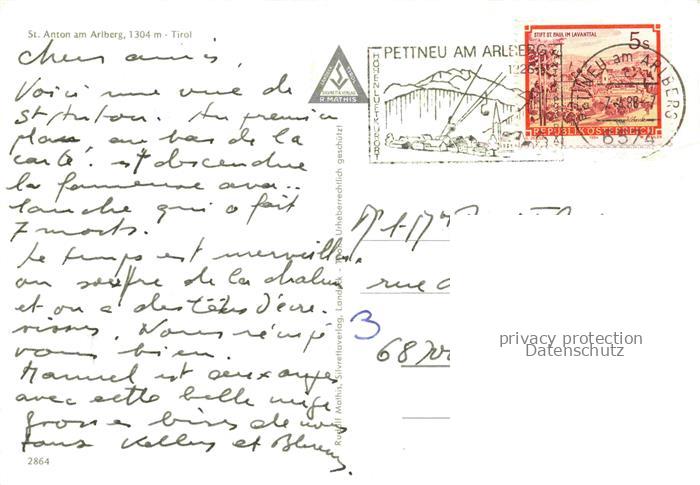 St. Anton am Arlberg, 1304 m - Tirol
Chers amis,
Voici une vue de
St Anton. Au premier
plan, au bas de la
carte est descendue
la fameuse ava..
lanche qui a fait
7 morts.
Le temps est merveilleux
on souffre de la chaleur
et on a des têtes d'écre.
visses. Nous
vous bien.
Manuel est aux anges
avec cette belle neige
Grosses bises de nous
tous Kelley et
2864
R. MATHIS
Rudolf Mathis, Silvrettaverlag, Landeck - Tirol Urheberrechtlich geschützt!
PETTNEU AM ARLBERG
1226 m
HÖHENLUFTKURORT
STIFT ST. PAUL IM LAVANTTAL
5s
REPUBLIK ÖSTERREICH
PETTNEU am ARLBERG
88-7
6574
M. M
rue
B
68700
privacy protection
Datenschutz